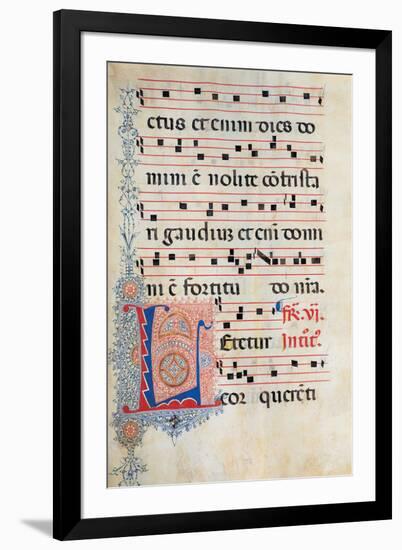 ctus et enim dies do
mini ē nolite cōtrista
ri gaudium et enī domi
ni ē fortitu do nr̄a.
fr̄. vj.
LEtetur Introit9.
cor querēti